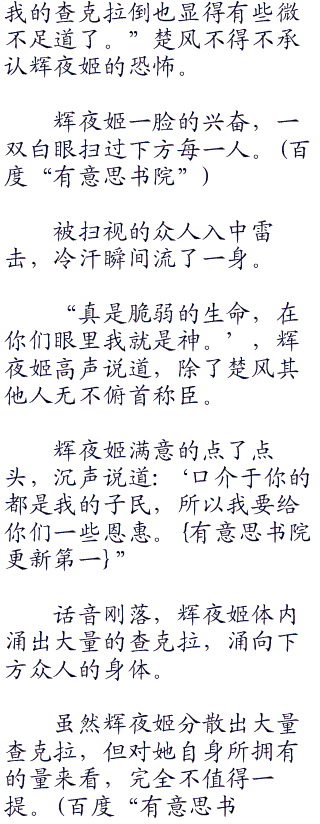 我的查克拉倒也显得有些微
不足道了。”楚风不得不承
认辉夜姬的恐怖。
辉夜姬一脸的兴奋，一
双白眼扫过下方每一人。(百
度“有意思书院”)
被扫视的众人入中雷
击，冷汗瞬间流了一身。
“真是脆弱的生命，在
你们眼里我就是神。’，辉
夜姬高声说道，除了楚风其
他人无不俯首称臣。
辉夜姬满意的点了点
头，沉声说道：‘口介于你的
都是我的子民，所以我要给
你们一些恩惠。{有意思书院
更新第一}”
话音刚落，辉夜姬体内
涌出大量的查克拉，涌向下
方众人的身体。
虽然辉夜姬分散出大量
查克拉，但对她自身所拥有
的量来看，完全不值得一
提。(百度“有意思书